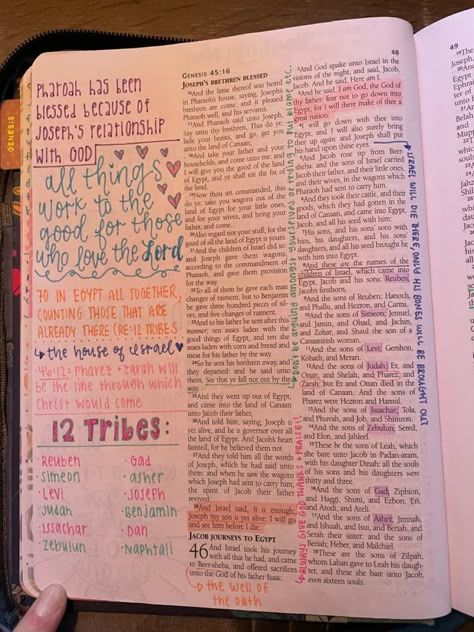 GENESIS
Pharoah has been
blessed because of
Joseph's relationship
with GOD
all things
work to the
good for those
who love the Lord
70 IN EGYPT ALL TOGETHER,
COUNTING THOSE THAT ARE
ALREADY THERE (RE:12 TRIBES
↳ the house of israel ♥
·46:12= Pharez + Zarah will
be the line through which
Christ would come
12 Tribes:
·Reuben
·Simeon
·Levi
·Judah
·Issachar
·Zebulun
·Gad
·asher
·Joseph
·Benjamin
·Dan
·Naphtali
GENESIS 45:16
JOSEPH'S BRETHREN BLESSED
16And the fame thereof was heard
in Pharaoh's house, saying, Joseph's
brethren are come: and it pleased
Pharaoh well, and his servants.
17And Pharaoh said unto Joseph,
Say unto thy brethren, This do ye;
lade your beasts, and go, get you
unto the land of Canaan;
18And take your father and your
households, and come unto me: and
I will give you the good of the land
of Egypt, and ye shall eat the fat of
the land.
19Now thou art commanded, this
do ye; take you wagons out of the
land of Egypt for your little ones,
and for your wives, and bring your
father, and come.
20Also regard not your stuff; for the
good of all the land of Egypt is yours.
21And the children of Israel did so:
and Joseph gave them wagons,
according to the commandment of
Pharaoh, and gave them provision
for the way.
22To all of them he gave each man
changes of raiment; but to Benjamin
he gave three hundred pieces of sil-
ver, and five changes of raiment.
23And to his father he sent after this
manner; ten asses laden with the
good things of Egypt, and ten she
asses laden with corn and bread and
meat for his father by the way.
24So he sent his brethren away, and
they departed: and he said unto
them, See that ye fall not out by the
way.
25And they went up out of Egypt,
and came into the land of Canaan
unto Jacob their father,
26And told him, saying, Joseph is
yet alive, and he is governor over all
the land of Egypt. And Jacob's heart
fainted, for he believed them not.
27And they told him all the words
of Joseph, which he had said unto
them: and when he saw the wagons
which Joseph had sent to carry him,
the spirit of Jacob their father
revived:
28And Israel said, It is enough;
Joseph my son is yet alive: I will go
and see him before I die.
JACOB JOURNEYS TO EGYPT
46 And Israel took his journey
with all that he had, and came
to Beer-sheba, and offered sacrifices
unto the God of his father Isaac.
↳ the well of
the oath
↳ALWAYS GIVE GOD THANKS + PRAISE!!
48
2And God spake unto Israel in the
visions of the night, and said, Jacob,
Jacob. And he said, Here am I.
3And he said, I am God, the God of
thy father: fear not to go down into
Egypt; for I will there make of thee a
great nation:
4I will go down with thee into
Egypt; and I will also surely bring
thee up again: and Joseph shall put
his hand upon thine eyes.
5And Jacob rose up from Beer-
sheba: and the sons of Israel carried
Jacob their father, and their little ones,
and their wives, in the wagons which
Pharaoh had sent to carry him.
6And they took their cattle, and their
goods, which they had gotten in the
land of Canaan, and came into Egypt,
Jacob, and all his seed with him:
7His sons, and his sons' sons with
him, his daughters, and his sons'
daughters, and all his seed brought he
with him into Egypt.
8And these are the names of the
children of Israel, which came into
Egypt, Jacob and his sons: Reuben,
Jacob's firstborn.
9And the sons of Reuben; Hanoch,
and Phallu, and Hezron, and Carmi.
10And the sons of Simeon; Jemuel,
and Jamin, and Ohad, and Jachin,
and Zohar, and Shaul the son of a
Canaanitish woman.
11And the sons of Levi; Gershon,
Kohath, and Merari.
12And the sons of Judah; Er, and
Onan, and Shelah, and Pharez, and
Zarah: but Er and Onan died in the
land of Canaan. And the sons of
Pharez were Hezron and Hamul.
13And the sons of Issachar; Tola,
and Phuvah, and Job, and Shimron.
14And the sons of Zebulun; Sered,
and Elon, and Jahleel.
15These be the sons of Leah, which
she bare unto Jacob in Padan-aram,
with his daughter Dinah: all the souls
of his sons and his daughters were
thirty and three.
16And the sons of Gad; Ziphion,
and Haggi, Shuni, and Ezbon, Eri,
and Arodi, and Areli.
17And the sons of Asher; Jimnah,
and Ishuah, and Isui, and Beriah, and
Serah their sister: and the sons of
Beriah; Heber, and Malchiel.
18These are the sons of Zilpah,
whom Laban gave to Leah his daugh-
ter, and these she bare unto Jacob,
even sixteen souls.
ISRAEL WILL DIE THERE, ONLY HIS BONES WILL BE BROUGHT OUT
49